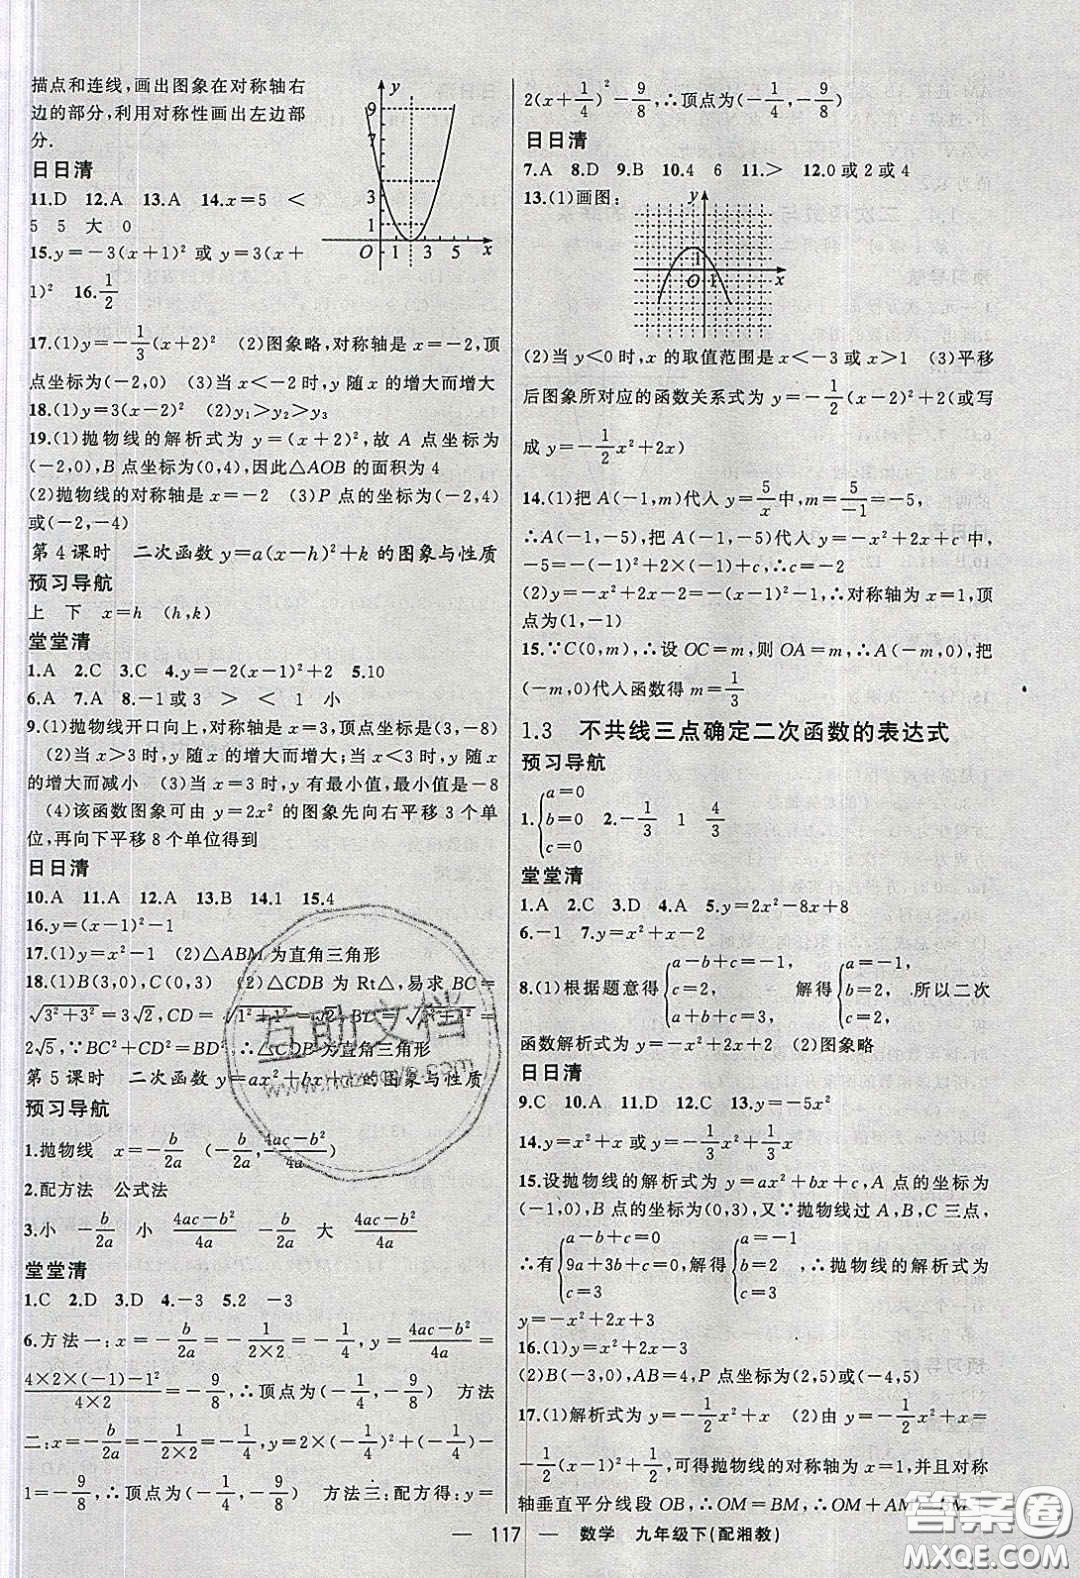 描点和连线,画出图象在对称轴右
边的部分,利用对称性画出左边部
分.
日日清
11.D 12.A 13.A 14.x=5 <
5 5 大 0
15.y=-3(x+1)² 或 y=3(x+
1)² 16.1/2
17.(1)y=-1/3(x+2)² (2)图象略,对称轴是 x=-2,顶
点坐标为(-2,0) (3)当 x<-2 时,y 随 x 的增大而增大
18.(1)y=3(x-2)² (2)y₁>y₂>y₃
19.(1)抛物线的解析式为 y=(x+2)²,故 A 点坐标为
(-2,0),B 点坐标为(0,4),因此△AOB 的面积为 4
(2)抛物线的对称轴是 x=-2 (3)P 点的坐标为(-2,4)
或(-2,-4)
第 4 课时 二次函数 y=a(x-h)²+k 的图象与性质
预习导航
上 下 x=h (h,k)
堂堂清
1.A 2.C 3.C 4.y=-2(x-1)²+2 5.10
6.A 7.A 8.-1或3 > < 1 小
9.(1)抛物线开口向上,对称轴是 x=3,顶点坐标是(3,-8)
(2)当 x>3 时,y 随 x 的增大而增大;当 x<3 时,y 随 x
的增大而减小 (3)当 x=3 时,y 有最小值,最小值是-8
(4)该函数图象可由 y=2x² 的图象先向右平移 3 个单
位,再向下平移 8 个单位得到
日日清
10.A 11.A 12.A 13.B 14.1 15.4
16.y=(x-1)²-1
17.(1)y=x²-1 (2)△ABM 为直角三角形
18.(1)B(3,0),C(0,3) (2)△CDB 为 Rt△,易求 BC=
√3²+3²=3√2,CD=√1²+1²=√2,BD=√2²+4²=
2√5,∵BC²+CD²=BD²,∴△CDB 为直角三角形
第 5 课时 二次函数 y=ax²+bx+c 的图象与性质
预习导航
1.抛物线 x=-b/2a (-b/2a,4ac-b²/4a)
2.配方法 公式法
3.小 -b/2a 小 4ac-b²/4a -b/2a 大 4ac-b²/4a
堂堂清
1.C 2.D 3.D 4.-3 5.2 -3
6.方法一:x=-b/2a=-1/2×2=-1/4,y=4ac-b²/4a=
4×2×(-1)-1²/4×2=-9/8,∴顶点为(-1/4,-9/8) 方法
二:x=-b/2a=-1/2×2=-1/4,y=2×(-1/4)²+(-1/4)-
1=-9/8,∴顶点为(-1/4,-9/8) 方法三:配方得:y=
y
9
3
1
O 1 3 5 x
2(x+1/4)²-9/8,∴顶点为(-1/4,-9/8)
日日清
7.A 8.D 9.B 10.4 6 11.> 12.0 或 2 或 4
13.(1)画图:
y
1
O 1 x
(2)当 y<0 时,x 的取值范围是 x<-3 或 x>1 (3)平移
后图象所对应的函数关系式为 y=-1/2(x-2)²+2(或写
成 y=-1/2x²+2x)
14.(1)把 A(-1,m)代入 y=5/x中,m=5/-1=-5,
∴A(-1,-5),把 A(-1,-5)代入 y=-x²+2x+c 中,
-5=-(-1)²+2×(-1)+c,∴c=-2
(2)y=-x²+2x-2=-(x-1)²-1,∴对称轴为 x=1,顶
点为(1,-1)
15.∵C(0,m),∴设 OC=m,则 OA=m,∴A(-m,0),把
(-m,0)代入函数得 m=1/3
1.3 不共线三点确定二次函数的表达式
预习导航
1.{a=0 b=0 c=0 2.-1/3 1 4/3
堂堂清
1.A 2.C 3.D 4.A 5.y=2x²-8x+8
6.-1 7.y=x²+x-2
8.(1)根据题意得{a-b+c=-1, c=2, a+b+c=3, 解得{a=-1, b=2, c=2, 所以二次
函数解析式为 y=-x²+2x+2 (2)图象略
日日清
9.C 10.A 11.D 12.C 13.y=-5x²
14.y=x²+x 或 y=-1/3x²+1/3x
15.设抛物线的解析式为 y=ax²+bx+c,A 点的坐标为
(-1,0),B 点的坐标为(0,3),又∵抛物线过 A,B,C 三点,
∴有{a-b+c=0 9a+3b+c=0, c=3 解得{a=-1 b=2 c=3 ,∴抛物线的解析式为
y=-x²+2x+3
16.(1)y=x²+2x-3
(2)B(-3,0),AB=4,P 点坐标为(2,5)或(-4,5)
17.(1)解析式为 y=-1/2x²+x (2)由 y=-1/2x²+x=
-1/2(x-1)²+1/2,可得抛物线的对称轴为 x=1,并且对称
轴垂直平分线段 OB,∴OM=BM,∴OM+AM=BM+
— 117 — 数学 九年级下(配湘教)
互助文档
答案圈
MXQE.COM